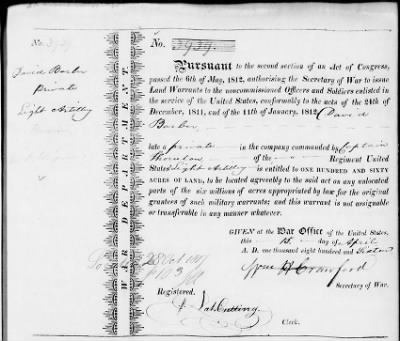 No. 3939
David Barber
Private
Light Artillery
WAR DEPARTMENT.
No. 3939.
Pursuant to the second section of an Act of Congress,
passed the 6th of May, 1812, authorising the Secretary of War to issue
Land Warrants to the noncommissioned Officers and Soldiers enlisted in
the service of the United States, conformably to the acts of the 24th of
December, 1811, and of the 11th of January, 1812 David
Barber
late a private in the company commanded by Captain
Thornton of the Regiment United
States Light Artillery is entitled to ONE HUNDRED AND SIXTY
ACRES OF LAND, to be located agreeably to the said act on any unlocated
part of the six millions of acres appropriated by law for the original
grantees of such military warrants; and this warrant is not assignable
or transferable in any manner whatever.
GIVEN at the War Office of the United States,
this day of April
A. D. one thousand eight hundred and
Wm H Crawford
Secretary of War.
Registered.
Nat. Cutting
Clerk.